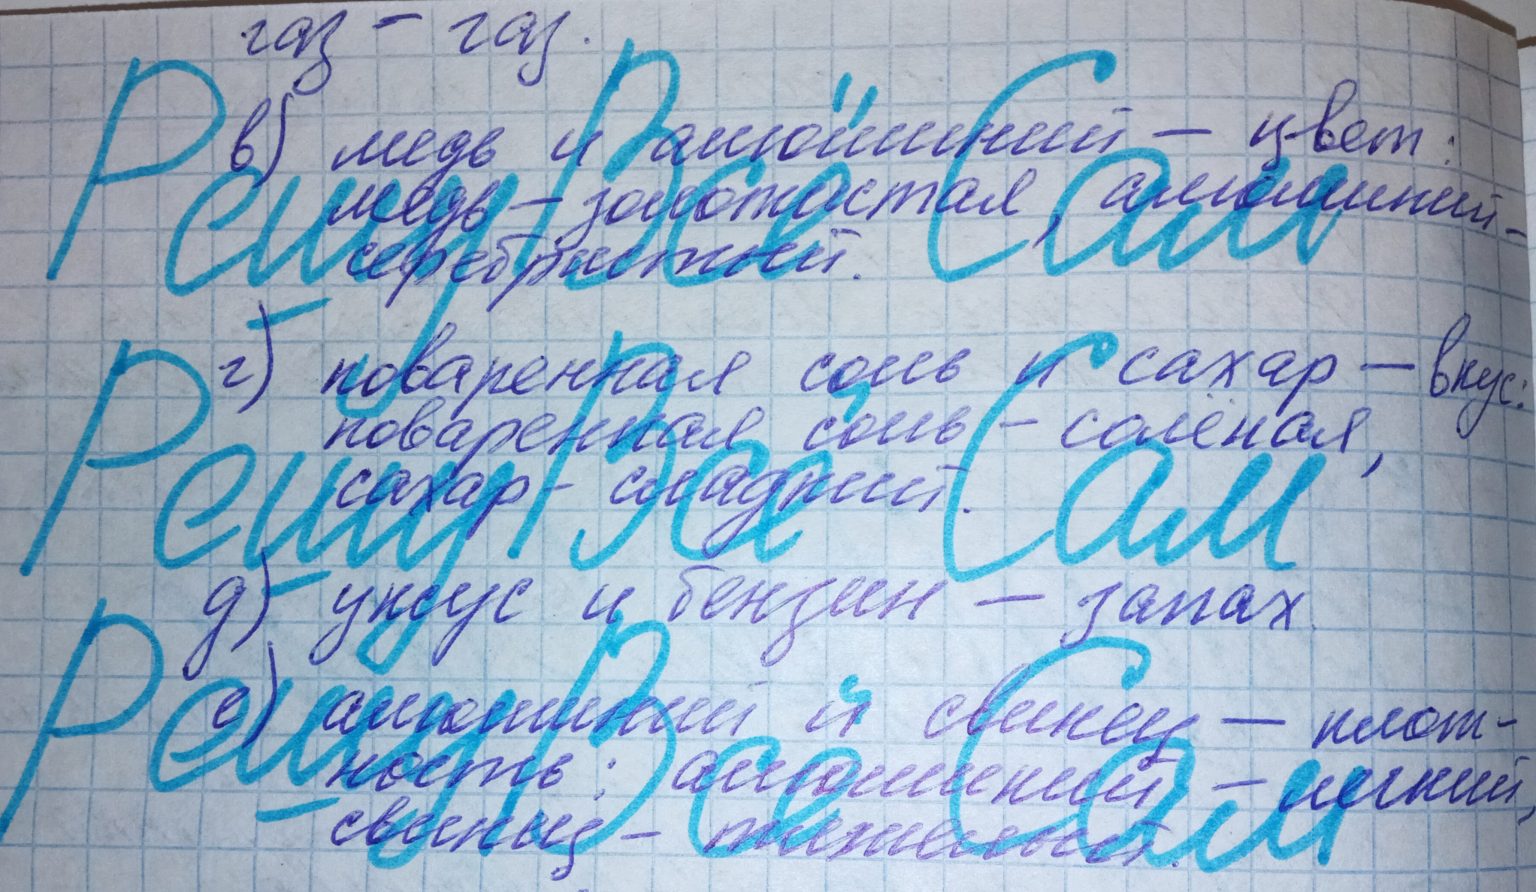 газ - газ.
в) медь и алюминий - цвет:
медь - золотистая, алюминий -
серебристый.
г) поваренная соль и сахар - вкус:
поваренная соль - солёная,
сахар - сладкий.
д) уксус и бензин - запах.
е) алюминий и свинец - плот-
ность: алюминий - легкий,
свинец - тяжелый.
Решу Всё Сам
Решу Всё Сам
Решу Всё Сам